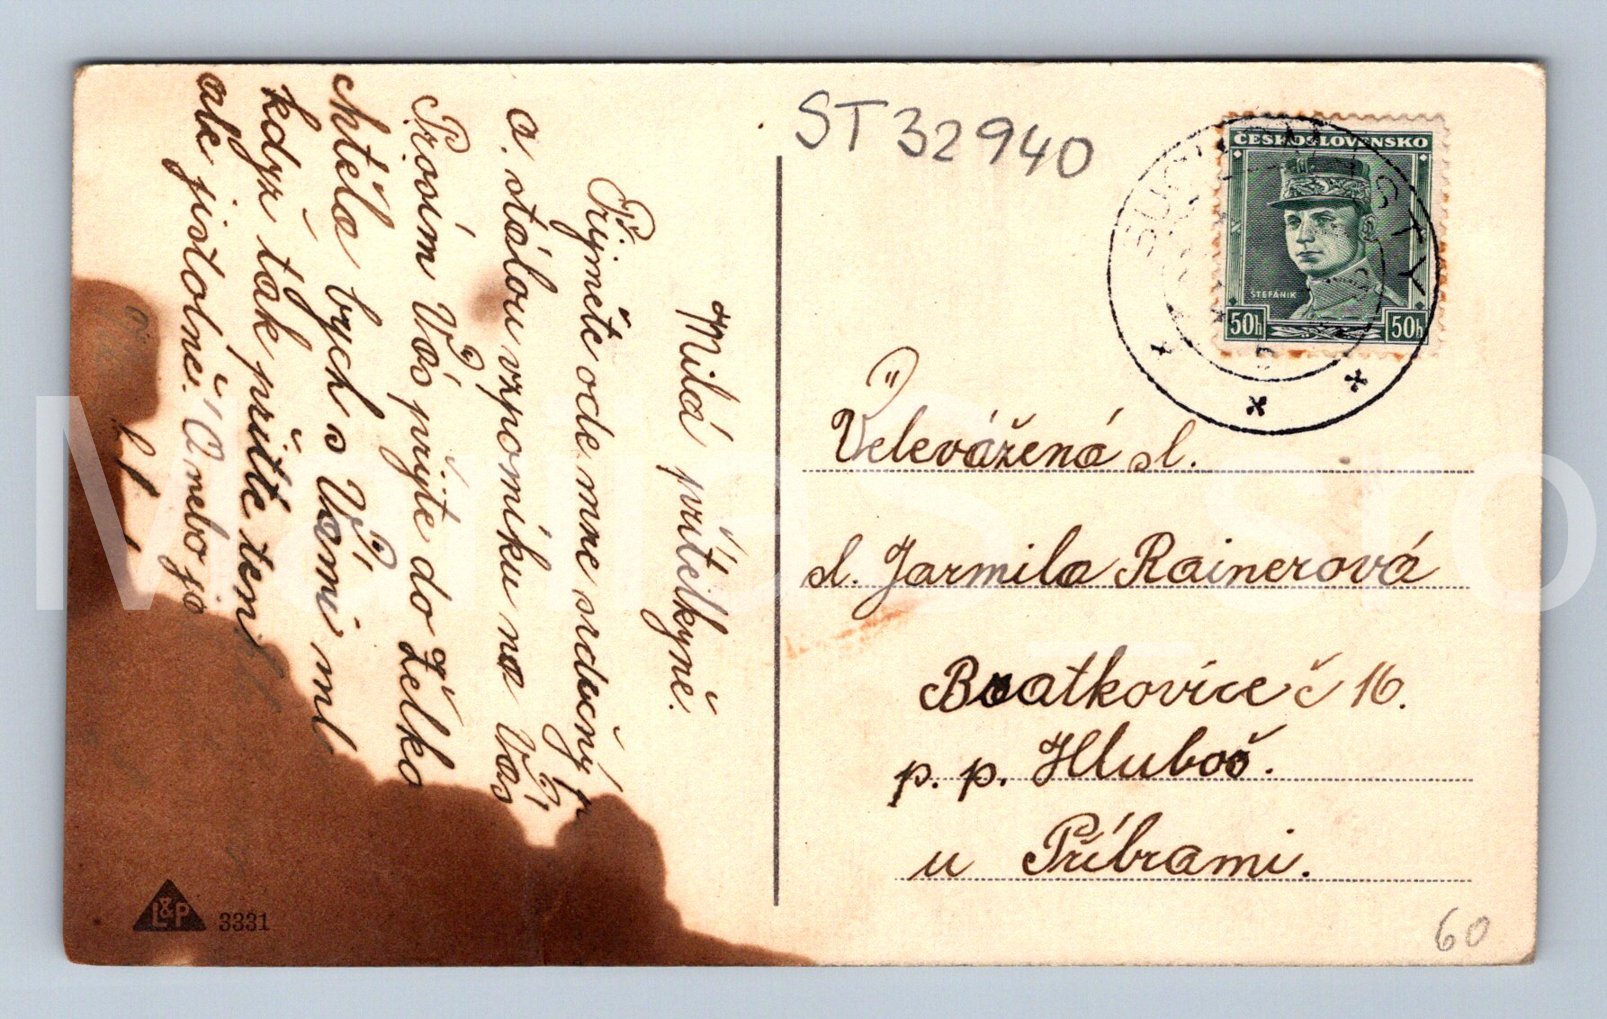 Milá přítelkyně.
Přijměte ode mne srdečný
a stálou vzpomínku na Vás
Prosím Vás přijte do Želko
chtěla bych s Vámi ml
kdyz tak přitte ten
ale jistotně. A nebo jo
ST32940
ČESKOSLOVENSKO
ŠTEFÁNIK
50h 50h
Velevážená sl.
sl. Jarmila Rainerová
Bratkovice č 16.
p. p. Hluboš.
u Příbrami.
60
L&P 3331